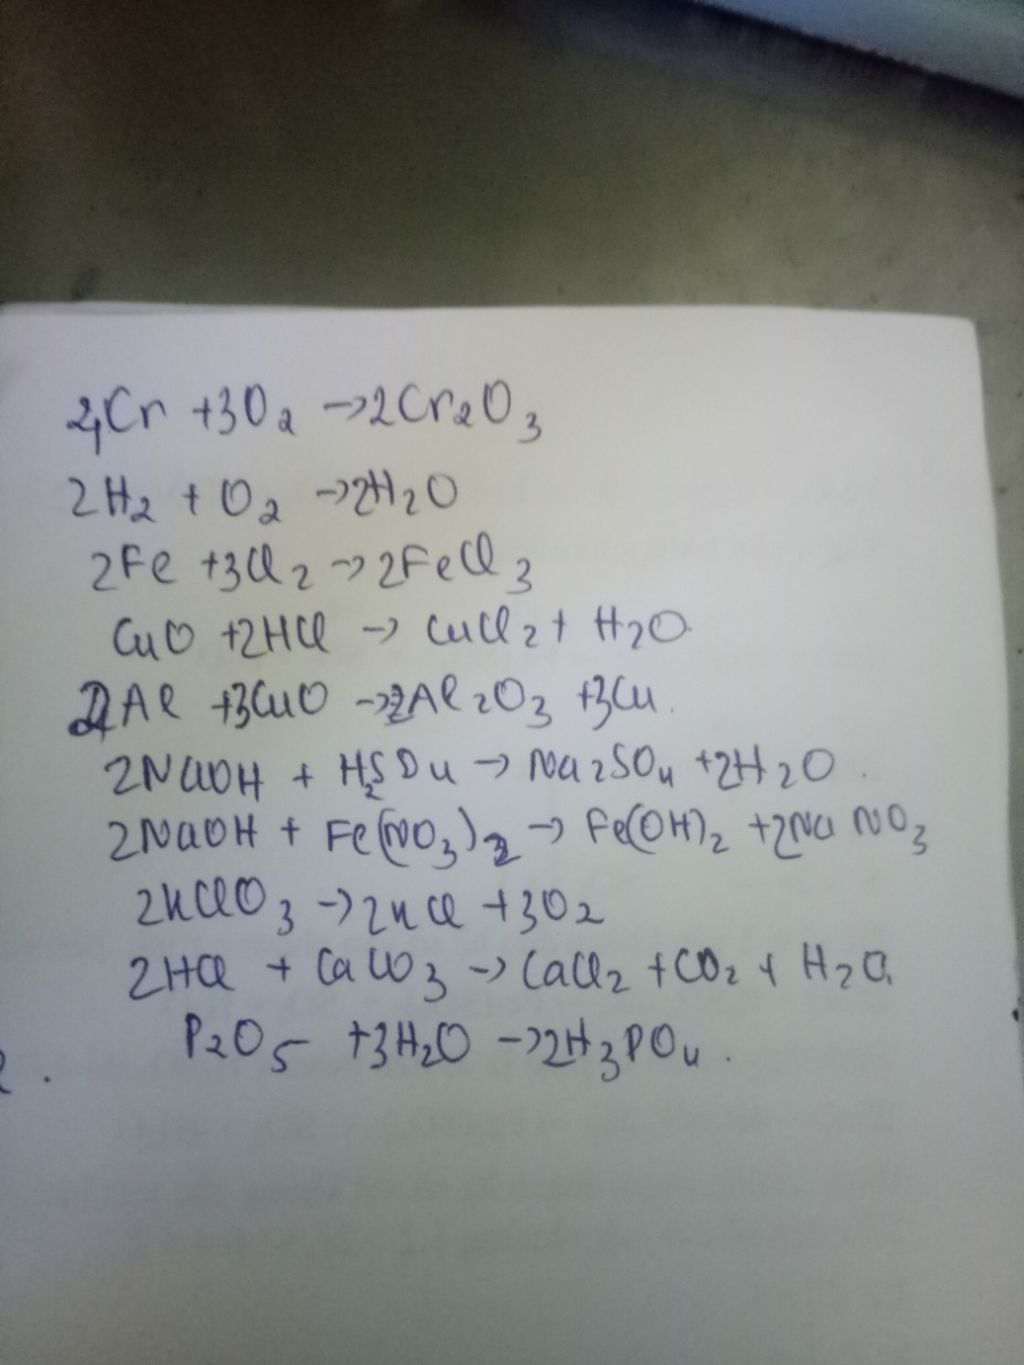 4Cr +3O2 →2Cr2O3
2H2 + O2 →2H2O
2Fe +3Cl2 →2FeCl3
CuO +2HCl → CuCl2 + H2O
2Al +3CuO → Al2O3 +3Cu.
2NaOH + H2SO4 → Na2SO4 +2H2O.
2NaOH + Fe(NO3)2 → Fe(OH)2 +2NaNO3
2KClO3 →2KCl +3O2
2HCl + CaCO3 → CaCl2 +CO2 + H2O.
P2O5 +3H2O →2H3PO4.